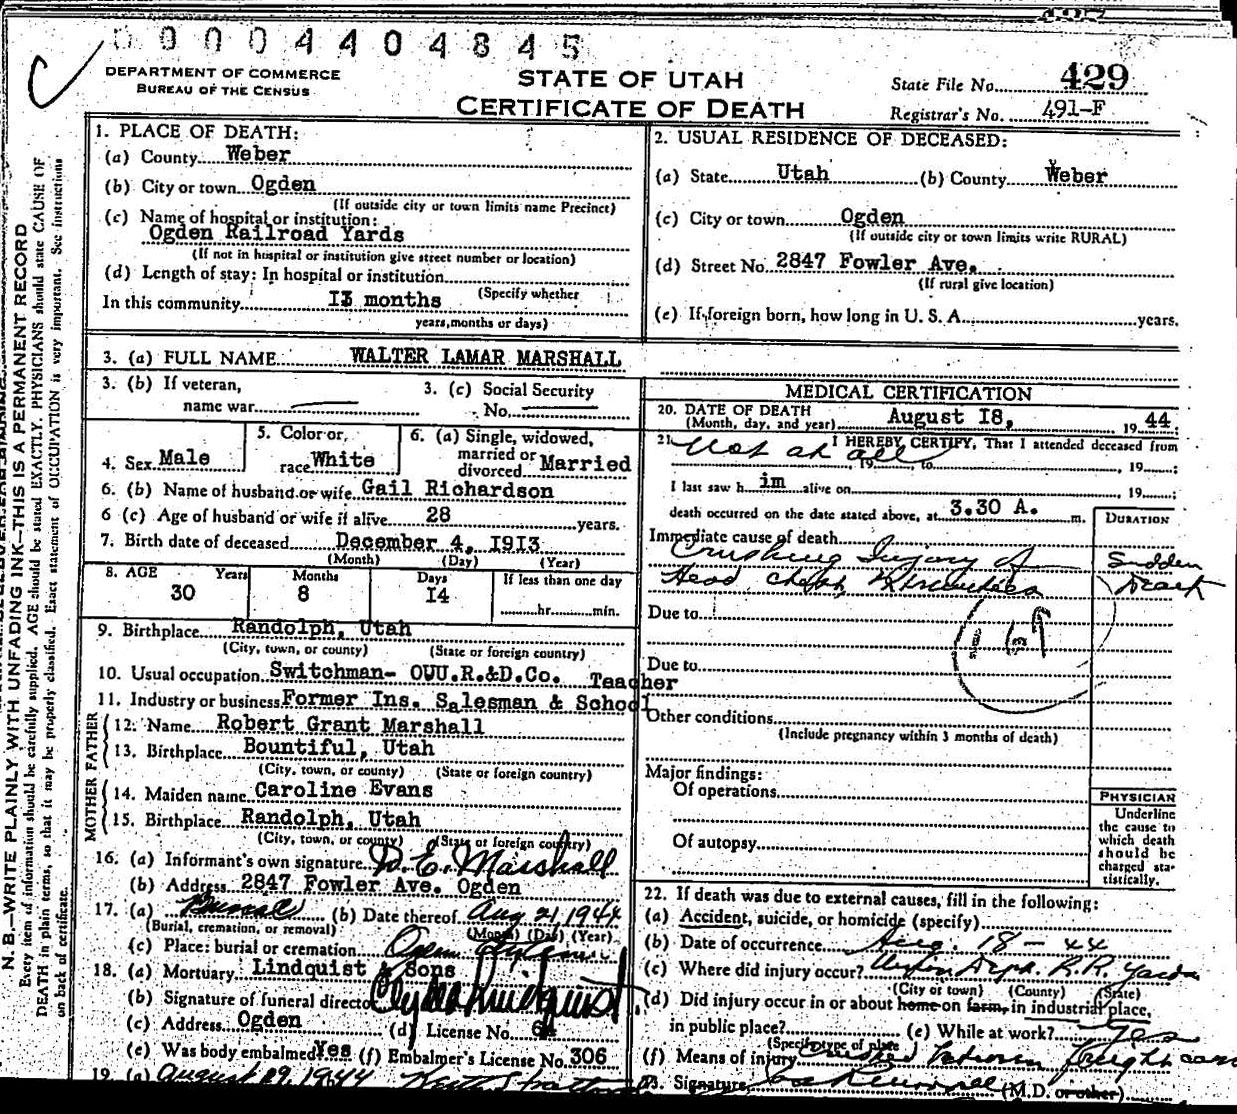 0 0 0 0 4 4 0 4 8 4 5
DEPARTMENT OF COMMERCE
BUREAU OF THE CENSUS
STATE OF UTAH
CERTIFICATE OF DEATH
State File No. 429
Registrar's No. 491-F
N. B.—WRITE PLAINLY WITH UNFADING INK—THIS IS A PERMANENT RECORD
Every item of information should be carefully supplied. AGE should be stated EXACTLY. PHYSICIANS should state CAUSE OF
DEATH in plain terms, so that it may be properly classified. Exact statement of OCCUPATION is very important. See instructions
on back of certificate.
1. PLACE OF DEATH:
(a) County Weber
(b) City or town Ogden
(If outside city or town limits name Precinct)
(c) Name of hospital or institution:
Ogden Railroad Yards
(If not in hospital or institution give street number or location)
(d) Length of stay: In hospital or institution
(Specify whether
In this community I3 months
years, months or days)
2. USUAL RESIDENCE OF DECEASED:
(a) State Utah (b) County Weber
(c) City or town Ogden
(If outside city or town limits write RURAL)
(d) Street No. 2847 Fowler Ave.
(If rural give location)
(e) If foreign born, how long in U. S. A. years.
3. (a) FULL NAME WALTER LAMAR MARSHALL
3. (b) If veteran,
name war
3. (c) Social Security
No.
4. Sex Male
5. Color or
race White
6. (a) Single, widowed,
married or
divorced Married
6. (b) Name of husband or wife Gail Richardson
6 (c) Age of husband or wife if alive 28 years.
7. Birth date of deceased December 4, I9I3
(Month) (Day) (Year)
8. AGE Years Months Days If less than one day
30 8 I4 hr. min.
9. Birthplace Randolph, Utah
(City, town, or county) (State or foreign country)
10. Usual occupation Switchman- OUU.R.&D.Co. Teacher
11. Industry or business Former Ins. Salesman & School
FATHER
12. Name Robert Grant Marshall
13. Birthplace Bountiful, Utah
(City, town, or county) (State or foreign country)
MOTHER
14. Maiden name Caroline Evans
15. Birthplace Randolph, Utah
(City, town, or county) (State or foreign country)
16. (a) Informant's own signature D. E. Marshall
(b) Address 2847 Fowler Ave. Ogden
17. (a) Burial (b) Date thereof Aug 21 1944
(Burial, cremation, or removal) (Month) (Day) (Year)
(c) Place: burial or cremation Ogden City
18. (a) Mortuary Lindquist & Sons
(b) Signature of funeral director Clyde Lindquist
(c) Address Ogden (d) License No.
(e) Was body embalmed Yes (f) Embalmer's License No. 306
19. (a) August 29, 1944
MEDICAL CERTIFICATION
20. DATE OF DEATH
(Month, day, and year) August I8, 19 44
21. I HEREBY CERTIFY, That I attended deceased from
Not at all, 19 to , 19 ;
I last saw h im alive on , 19 ;
death occurred on the date stated above, at 3.30 A. m.
DURATION
Immediate cause of death
Crushing Injury of
Head chest, Extremities
Sudden
Death
Due to
Due to
Other conditions
(Include pregnancy within 3 months of death)
Major findings:
Of operations
Of autopsy
PHYSICIAN
Underline
the cause to
which death
should be
charged sta-
tistically.
22. If death was due to external causes, fill in the following:
(a) Accident, suicide, or homicide (specify)
(b) Date of occurrence Aug. 18 - 44
(c) Where did injury occur? R.R. Yards
(City or town) (County) (State)
(d) Did injury occur in or about home on farm, in industrial place,
in public place? (e) While at work? Yes
(Specify type of place)
(f) Means of injury crushed between freight cars
23. Signature (M.D. or other)